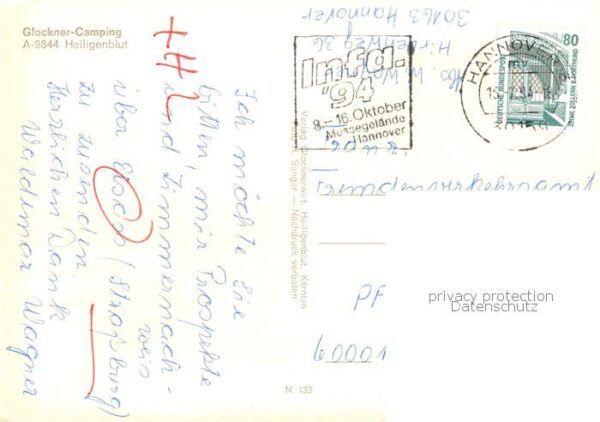 Glockner-Camping
A-9844 Heiligenblut
Ich möchte Sie
bitten, mir Prospekte
und Zimmernach-
weis
über Elsaß (Straßburg)
zu zusenden
Herzlichen Dank
Waldemar Wagner
Verlag Glocknerwirt, Heiligenblut, Kärnten
Sanger — Nachdruck verboten
N. 133
Infa.
'94
8.-16. Oktober
Messegelände
Hannover
HANNOVER
30159
80
DEUTSCHE BUNDESPOST
ZECHE ZOLLERN II DORTMUND
W. Wagner
36
30163 Hannover
PF
privacy protection
Datenschutz